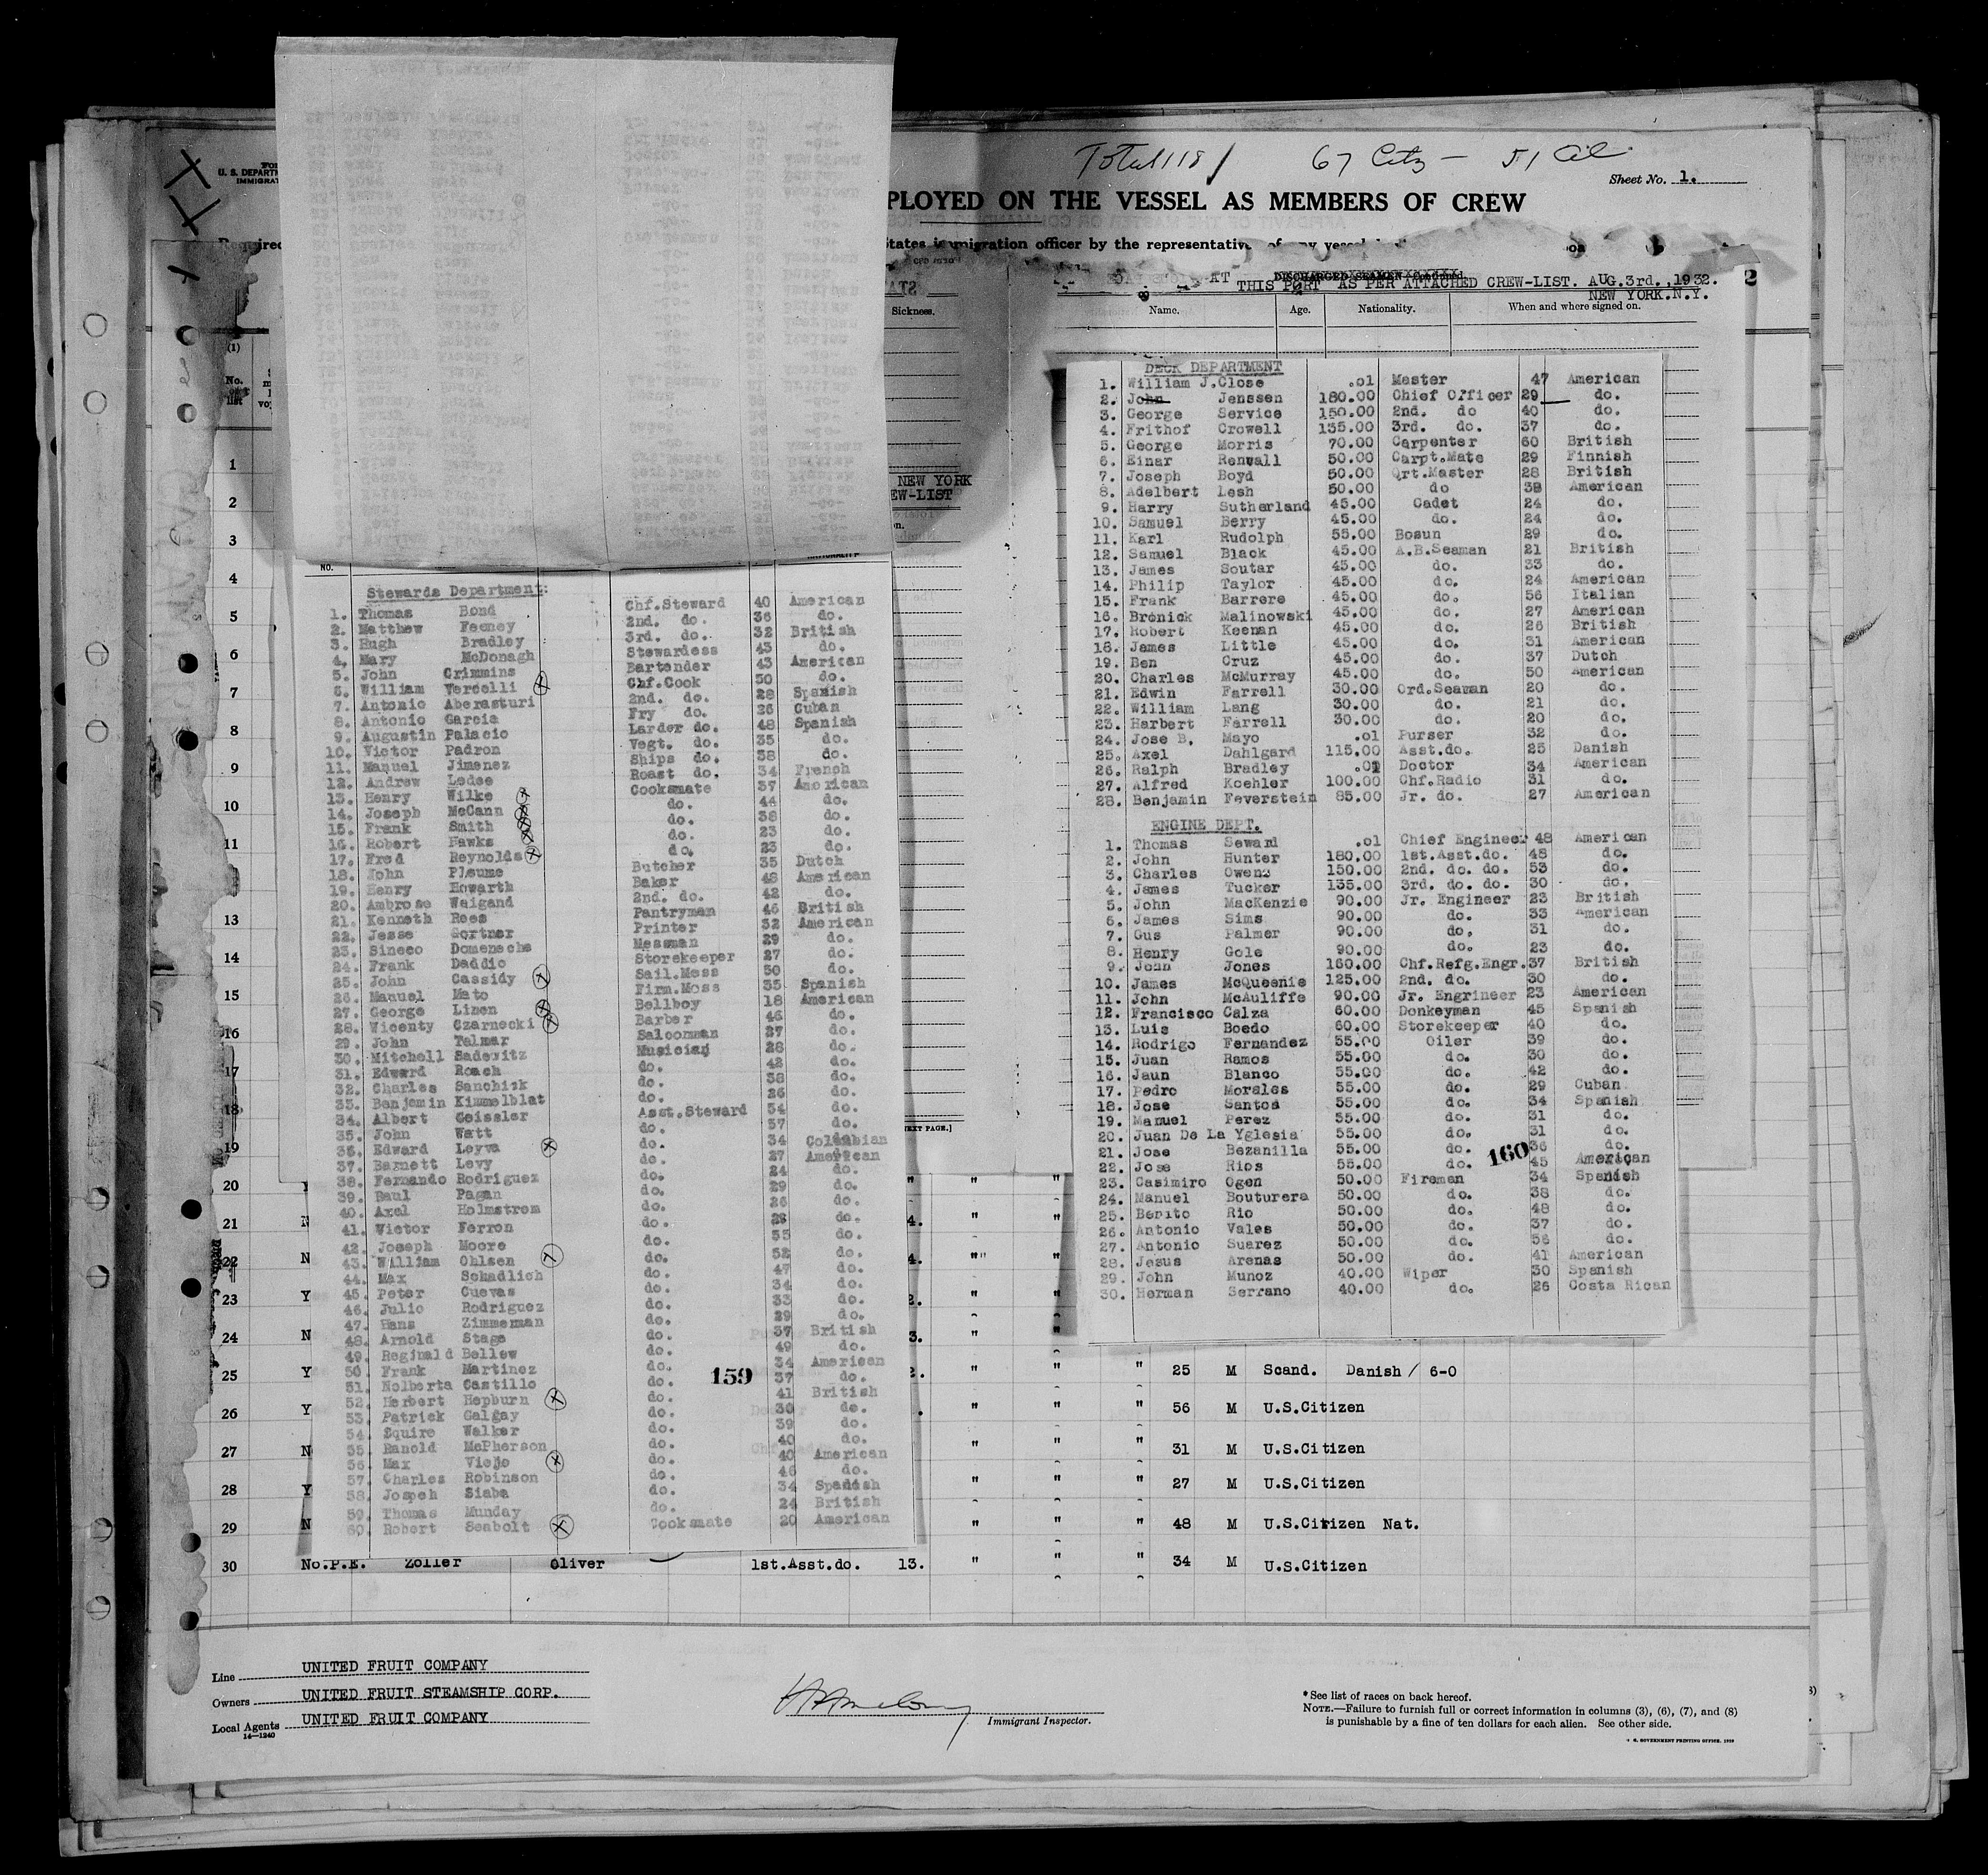 Total 118 / 67 Citz - 51 Ail
Sheet No. 1.
U. S. DEPART
IMMIGRAT
PLOYED ON THE VESSEL AS MEMBERS OF CREW
Required
States immigration officer by the representative of any vessel
AT DISCHARGED SEAMEN Continued.
THIS PORT AS PER ATTACHED CREW-LIST. AUG.3rd.,1932.
NEW YORK.N.Y.
2
Sickness.
Name. Age. Nationality. When and where signed on.
NEW YORK
EW-LIST
No.
list
NO.
Stewards Department:
1. Thomas Bond Chf.Steward 40 American
2. Matthew Feeney 2nd. do. 36 do.
3. Hugh Bradley 3rd. do. 32 British
4. Mary McDonagh Stewardess 43 do.
5. John Crimmins Bartender 43 American
6. William Verdelli Chf.Cook 50 do.
7. Antonio Aberasturi 2nd. do. 28 Spanish
8. Antonio Garcia Fry do. 26 Cuban
9. Augustin Palacio Larder do. 48 Spanish
10. Victor Padron Vegt. do. 35 do.
11. Manuel Jimenez Ships do. 38 do.
12. Andrew Ledee Roast do. 34 French
13. Henry Wilke Cooksmate 37 American
14. Joseph McCann do. 44 do.
15. Frank Smith do. 38 do.
16. Robert Hawks do. 23 do.
17. Fred Reynolds do. 23 do.
18. John Pleume Butcher 35 Dutch
19. Henry Howarth Baker 48 American
20. Ambrose Weigand 2nd. do. 42 do.
21. Kenneth Rees Pantryman 46 British
22. Jesse Gortner Printer 32 American
23. Sineco Domenechs Messman 29 do.
24. Frank Daddio Storekeeper 27 do.
25. John Cassidy Sail.Mess 50 do.
26. Manuel Mato Firm.Mess 35 Spanish
27. George Linen Bellboy 18 American
28. Wicenty Czarnecki Barber 46 do.
29. John Talmar Saloonman 27 do.
30. Mitchell Sadewitz Musician 28 do.
31. Edward Roach do. 42 do.
32. Charles Sanchick do. 38 do.
33. Benjamin Kimmelblat do. 26 do.
34. Albert Geissler Asst.Steward 54 do.
35. John Watt do. 37 do.
36. Edward Leyva do. 34 Colombian
37. Barnett Levy do. 27 American
38. Fernando Rodriguez do. 24 do.
39. Raul Pagan do. 29 do.
40. Axel Holmstrom do. 26 do.
41. Victor Ferron do. 28 do.
42. Joseph Moore do. 55 do.
43. William Ohlsen do. 52 do.
44. Max Schadlich do. 47 do.
45. Peter Cuevas do. 34 do.
46. Julio Rodriguez do. 33 do.
47. Hans Zimmerman do. 29 do.
48. Arnold Stage do. 37 British
49. Reginald Bellew do. 49 do.
50. Frank Martinez do. 34 American
51. Nolberta Castillo do. 37 do.
52. Herbert Hepburn do. 41 British
53. Patrick Galgay do. 30 do.
54. Squire Walker do. 39 do.
55. Ranold McPherson do. 40 do.
56. Max Viejo do. 40 American
57. Charles Robinson do. 46 do.
58. Jospeh Siaba do. 34 Spanish
59. Thomas Munday do. 24 British
60. Robert Seabolt Cooksmate 20 American
159
DECK DEPARTMENT
1. William J.Close .01 Master 47 American
2. John Jenssen 180.00 Chief Officer 29 do.
3. George Service 150.00 2nd. do 40 do.
4. Frithof Crowell 135.00 3rd. do. 37 do.
5. George Morris 70.00 Carpenter 60 British
6. Einar Renwall 50.00 Carpt.Mate 29 Finnish
7. Joseph Boyd 50.00 Qrt.Master 28 British
8. Adelbert Lesh 50.00 do 38 American
9. Harry Sutherland 45.00 Cadet 24 do.
10. Samuel Berry 45.00 do. 24 do.
11. Karl Rudolph 55.00 Bosun 29 do.
12. Samuel Black 45.00 A.B.Seaman 21 British
13. James Soutar 45.00 do. 33 do.
14. Philip Taylor 45.00 do. 24 American
15. Frank Barrere 45.00 do. 56 Italian
16. Brenick Malinowski 45.00 do. 27 American
17. Robert Keenan 45.00 do. 26 British
18. James Little 45.00 do. 31 American
19. Ben Cruz 45.00 do. 37 Dutch
20. Charles McMurray 45.00 do. 50 American
21. Edwin Farrell 30.00 Ord.Seaman 20 do.
22. William Lang 30.00 do. 21 do.
23. Herbert Farrell 30.00 do. 20 do.
24. Jose B. Mayo .01 Purser 32 do.
25. Axel Dahlgard 115.00 Asst.do. 25 Danish
26. Ralph Bradley .01 Doctor 34 American
27. Alfred Koehler 100.00 Chf.Radio 31 do.
28. Benjamin Feverstein 85.00 Jr. do. 27 American
ENGINE DEPT.
1. Thomas Seward .01 Chief Engineer 48 American
2. John Hunter 180.00 1st.Asst.do. 48 do.
3. Charles Owens 150.00 2nd. do. do. 53 do.
4. James Tucker 135.00 3rd. do. do. 30 do.
5. John MacKenzie 90.00 Jr. Engineer 23 British
6. James Sims 90.00 do. 33 American
7. Gus Palmer 90.00 do. 31 do.
8. Henry Gole 90.00 do. 23 do.
9. John Jones 160.00 Chf.Refg.Engr. 37 British
10. James McQueenie 125.00 2nd. do. 30 do.
11. John McAuliffe 90.00 Jr. Engrineer 23 American
12. Francisco Calza 60.00 Donkeyman 45 Spanish
13. Luis Boedo 60.00 Storekeeper 40 do.
14. Rodrigo Fernandez 55.00 Oiler 39 do.
15. Juan Ramos 55.00 do. 30 do.
16. Jaun Blanco 55.00 do. 42 do.
17. Pedro Morales 55.00 do. 29 Cuban
18. Jose Santos 55.00 do. 34 Spanish
19. Manuel Perez 55.00 do. 31 do.
20. Juan De La Yglesia 55.00 do. 31 do.
21. Jose Bezanilla 55.00 do. 36 do.
22. Jose Rios 55.00 do. 45 American
23. Casimiro Ogen 50.00 Fireman 34 Spanish
24. Manuel Bouturera 50.00 do. 38 do.
25. Benito Rio 50.00 do. 48 do.
26. Antonio Vales 50.00 do. 37 do.
27. Antonio Suarez 50.00 do. 56 do.
28. Jesus Arenas 50.00 do. 41 American
29. John Munoz 40.00 Wiper 30 Spanish
30. Herman Serrano 40.00 do. 26 Costa Rican
160
1
2
3
4
5
6
7
8
9
10
11
13
14
15
16
17
18
19
EXT PAGE.]
20 " " "
21 N 4. " " "
22 N 4. " " "
23 Y 2. " " "
24 N 3. " " "
25 Y 2. " " " 25 M Scand. Danish / 6-0
26 Y " " " 56 M U.S.Citizen
27 N " " " 31 M U.S.Citizen
28 Y " " " 27 M U.S.Citizen
29 N " " " 48 M U.S.Citizen Nat.
30 No.P.E. Zoller Oliver 1st.Asst.do. 13. " " " 34 M U.S.Citizen
Line UNITED FRUIT COMPANY
Owners UNITED FRUIT STEAMSHIP CORP.
Local Agents UNITED FRUIT COMPANY
14-1240
Immigrant Inspector.
* See list of races on back hereof.
NOTE.—Failure to furnish full or correct information in columns (3), (6), (7), and (8)
is punishable by a fine of ten dollars for each alien. See other side.
GOVERNMENT PRINTING OFFICE